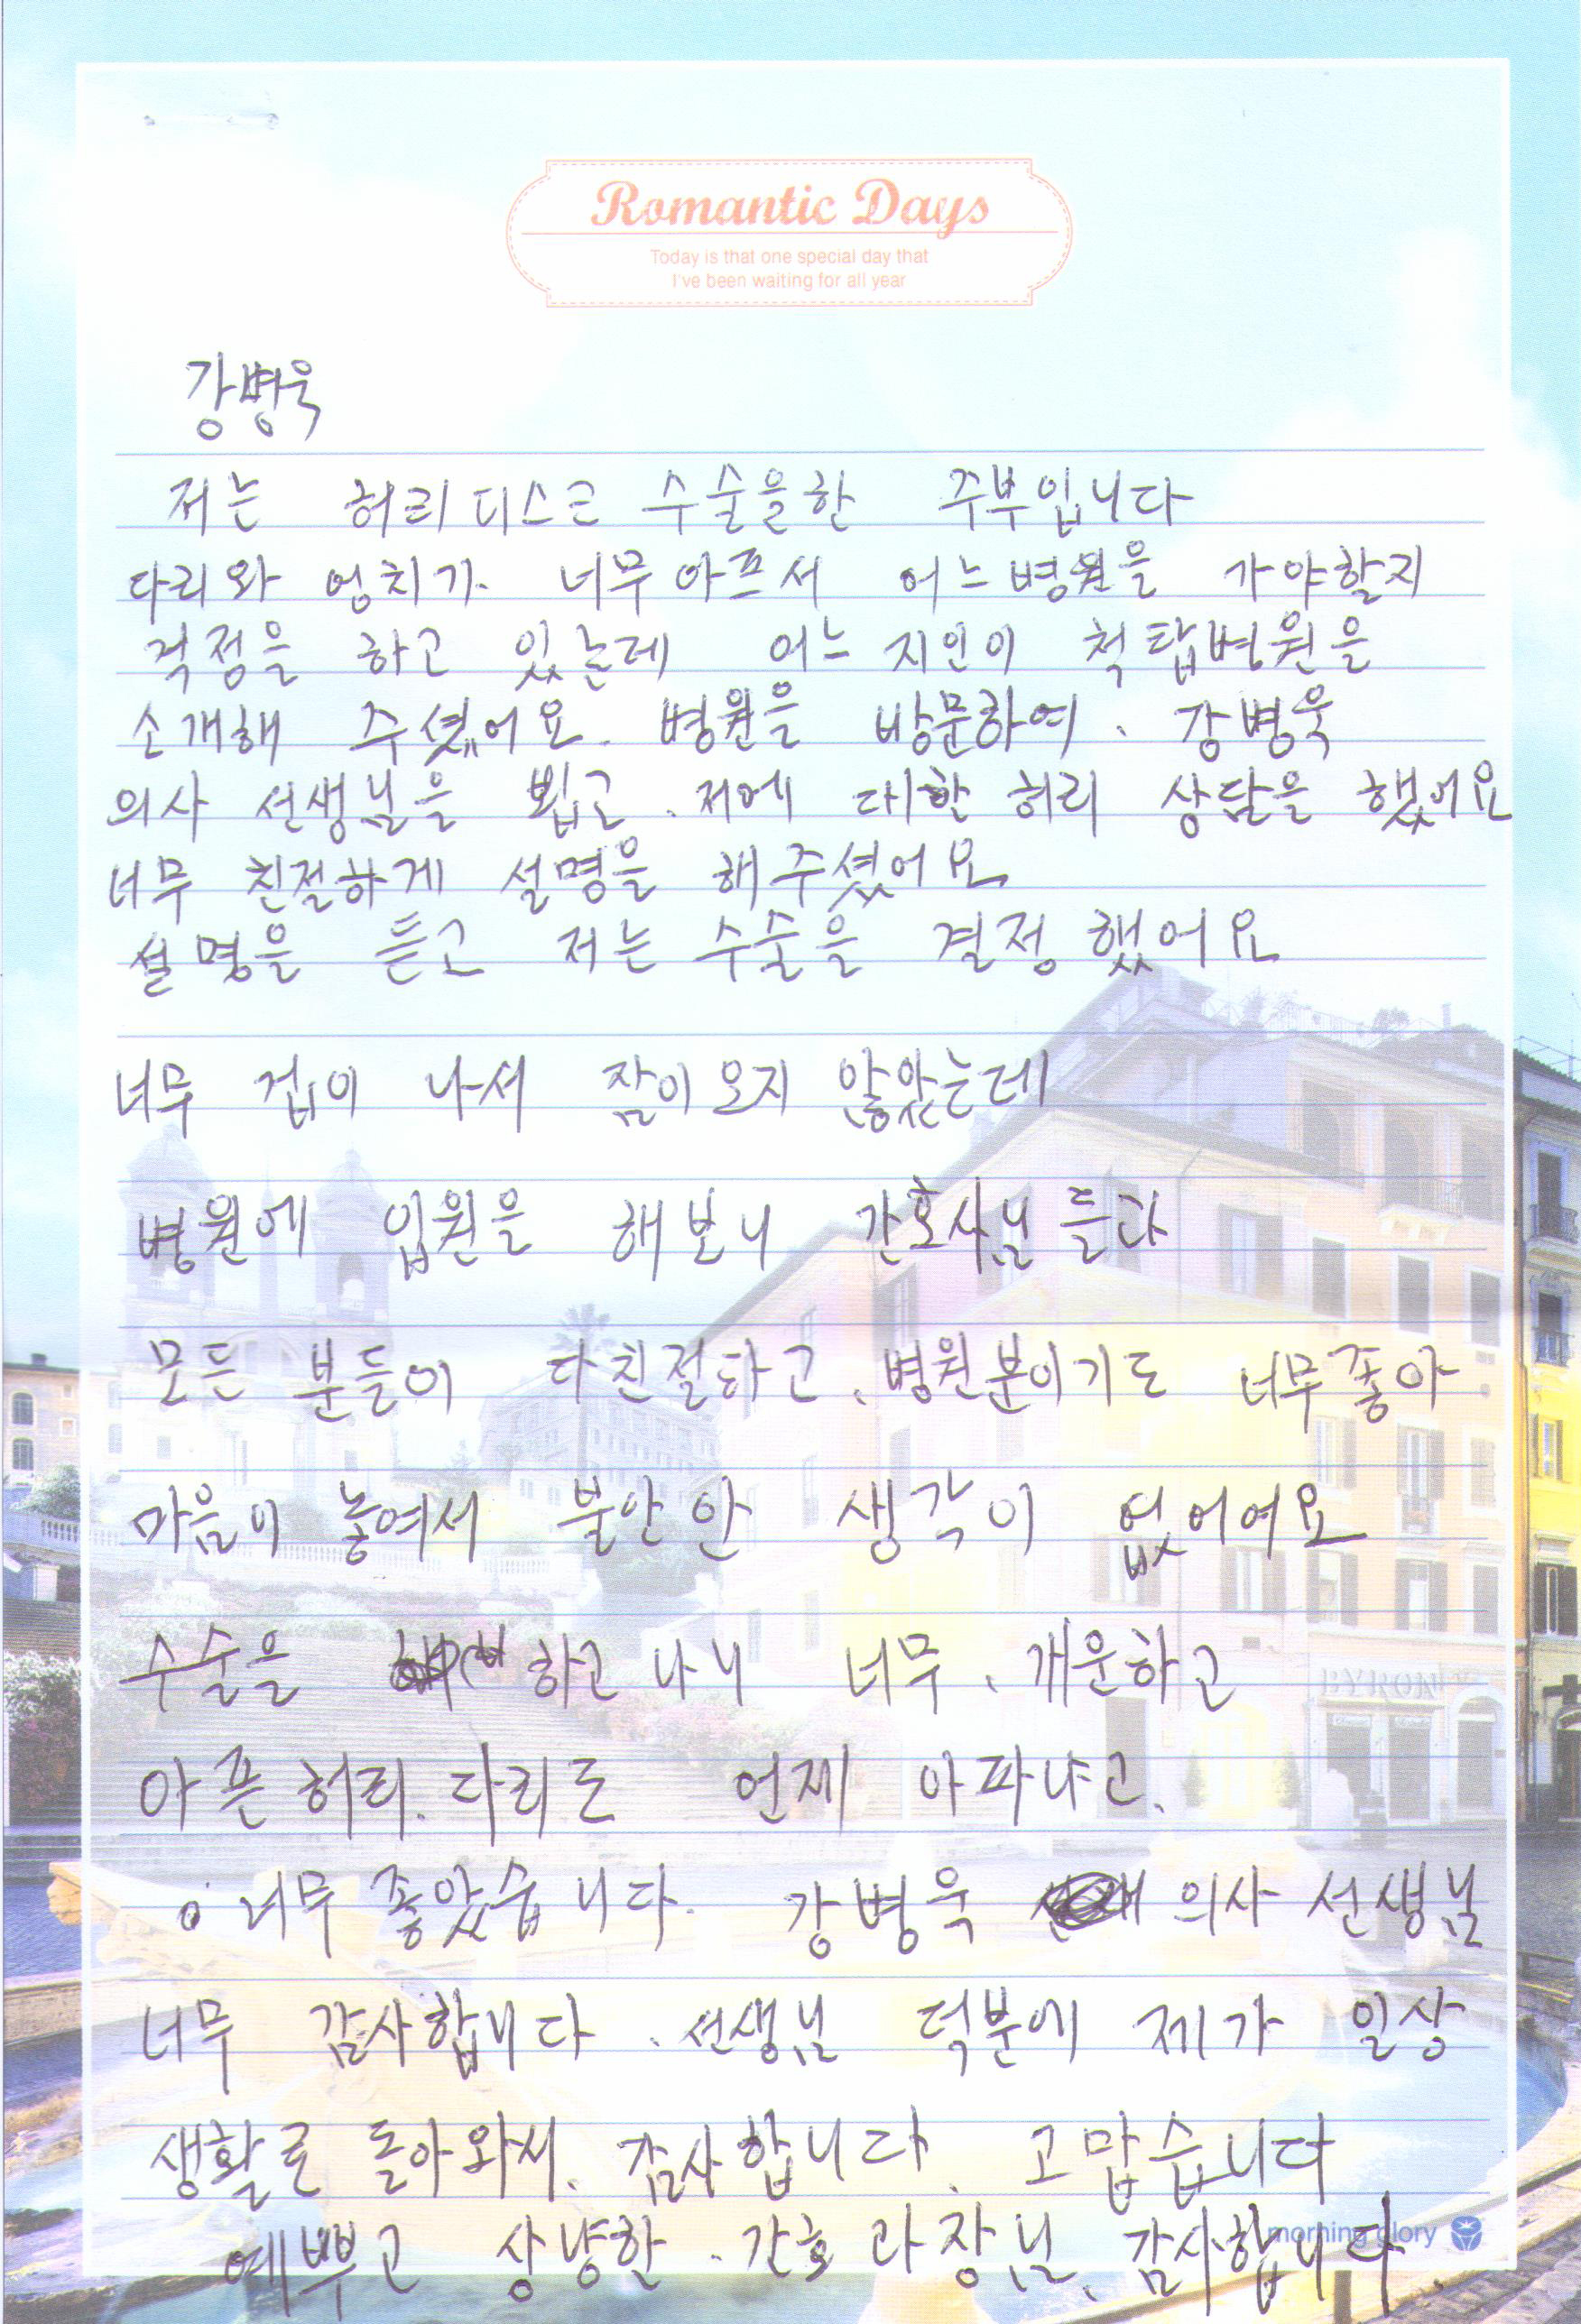 Romantic Days
Today is that one special day that
I've been waiting for all year
강병욱
저는 허리 디스크 수술을한 주부입니다
다리와 엉치가 너무 아프서 어느 병원을 가야할지
걱정을 하고 있는데 어느 지인이 척탑병원을
소개해 주셨어요. 병원을 방문하여. 강병욱
의사 선생님을 뵙고. 저에 대한 허리 상담을 했어요
너무 친절하게 설명을 해주셨어요
설명을 듣고 저는 수술을 결정 했어요
너무 겁이 나서 잠이 오지 않았는데
병원에 입원을 해보니 간호사님 들과
모든 분들이 다 친절하고. 병원분이기도 너무 좋아
마음이 놓여서 불안안 생각이 없어여요
수술을 하고 나니 너무. 개운하고
아픈 허리. 다리도 언제 아파냐고.
너무 좋았습니다. 강병욱 의사 선생님
너무 감사합니다. 선생님 덕분에 제가 일상
생활로 돌아와서. 감사합니다. 고맙습니다
예뿌고 상냥한. 간호 과장님. 감사합니다.
morning glory